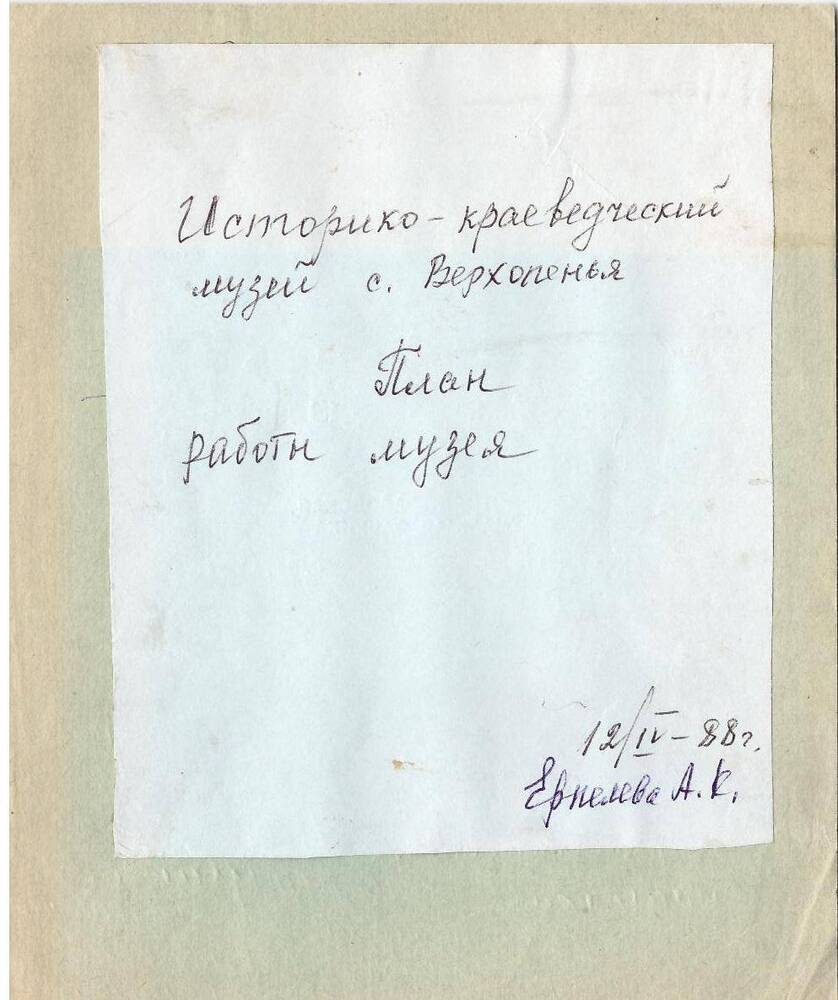 Историко-краеведческий
музей с. Верхопенья
План
работы музея
12/IV-88г.
Ерпелева А.К.